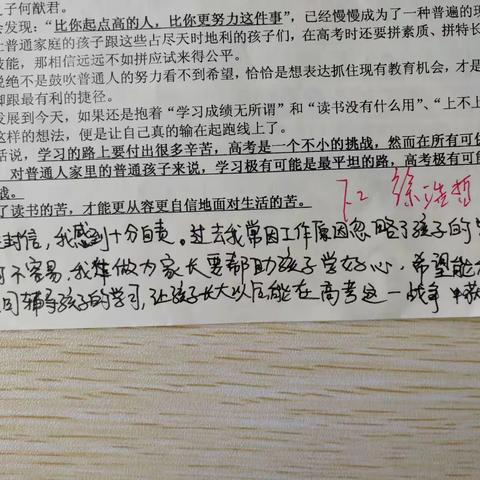 之子何猷君。
会发现：“比你起点高的人，比你更努力这件事”，已经慢慢成为了一种普遍的现
让普通家庭的孩子跟这些占尽天时地利的孩子们，在高考时还要拼素质、拼特长
技能，那相信远远不如拼应试来得公平。
说绝不是鼓吹普通人的努力看不到希望，恰恰是想表达抓住现有教育机会，才是
脚跟最有利的捷径。
发展到今天，如果还是抱着“学习成绩无所谓”和“读书没有什么用”、“上不上
这样的想法，便是让自己真的输在起跑线上了。
话说，学习的路上要付出很多辛苦，高考是一个不小的挑战，然而在所有可
对普通人家里的普通孩子来说，学习极有可能是最平坦的路，高考极有可能
战。
了读书的苦，才能更从容更自信地面对生活的苦。
徐浩哲
封信，我感到十分自责。过去我常因工作原因忽略了孩子的
不容易，我作做为家长要帮助孩子学好心，希望能
辅导孩子的学习，让孩子长大以后能在高考这一战争中